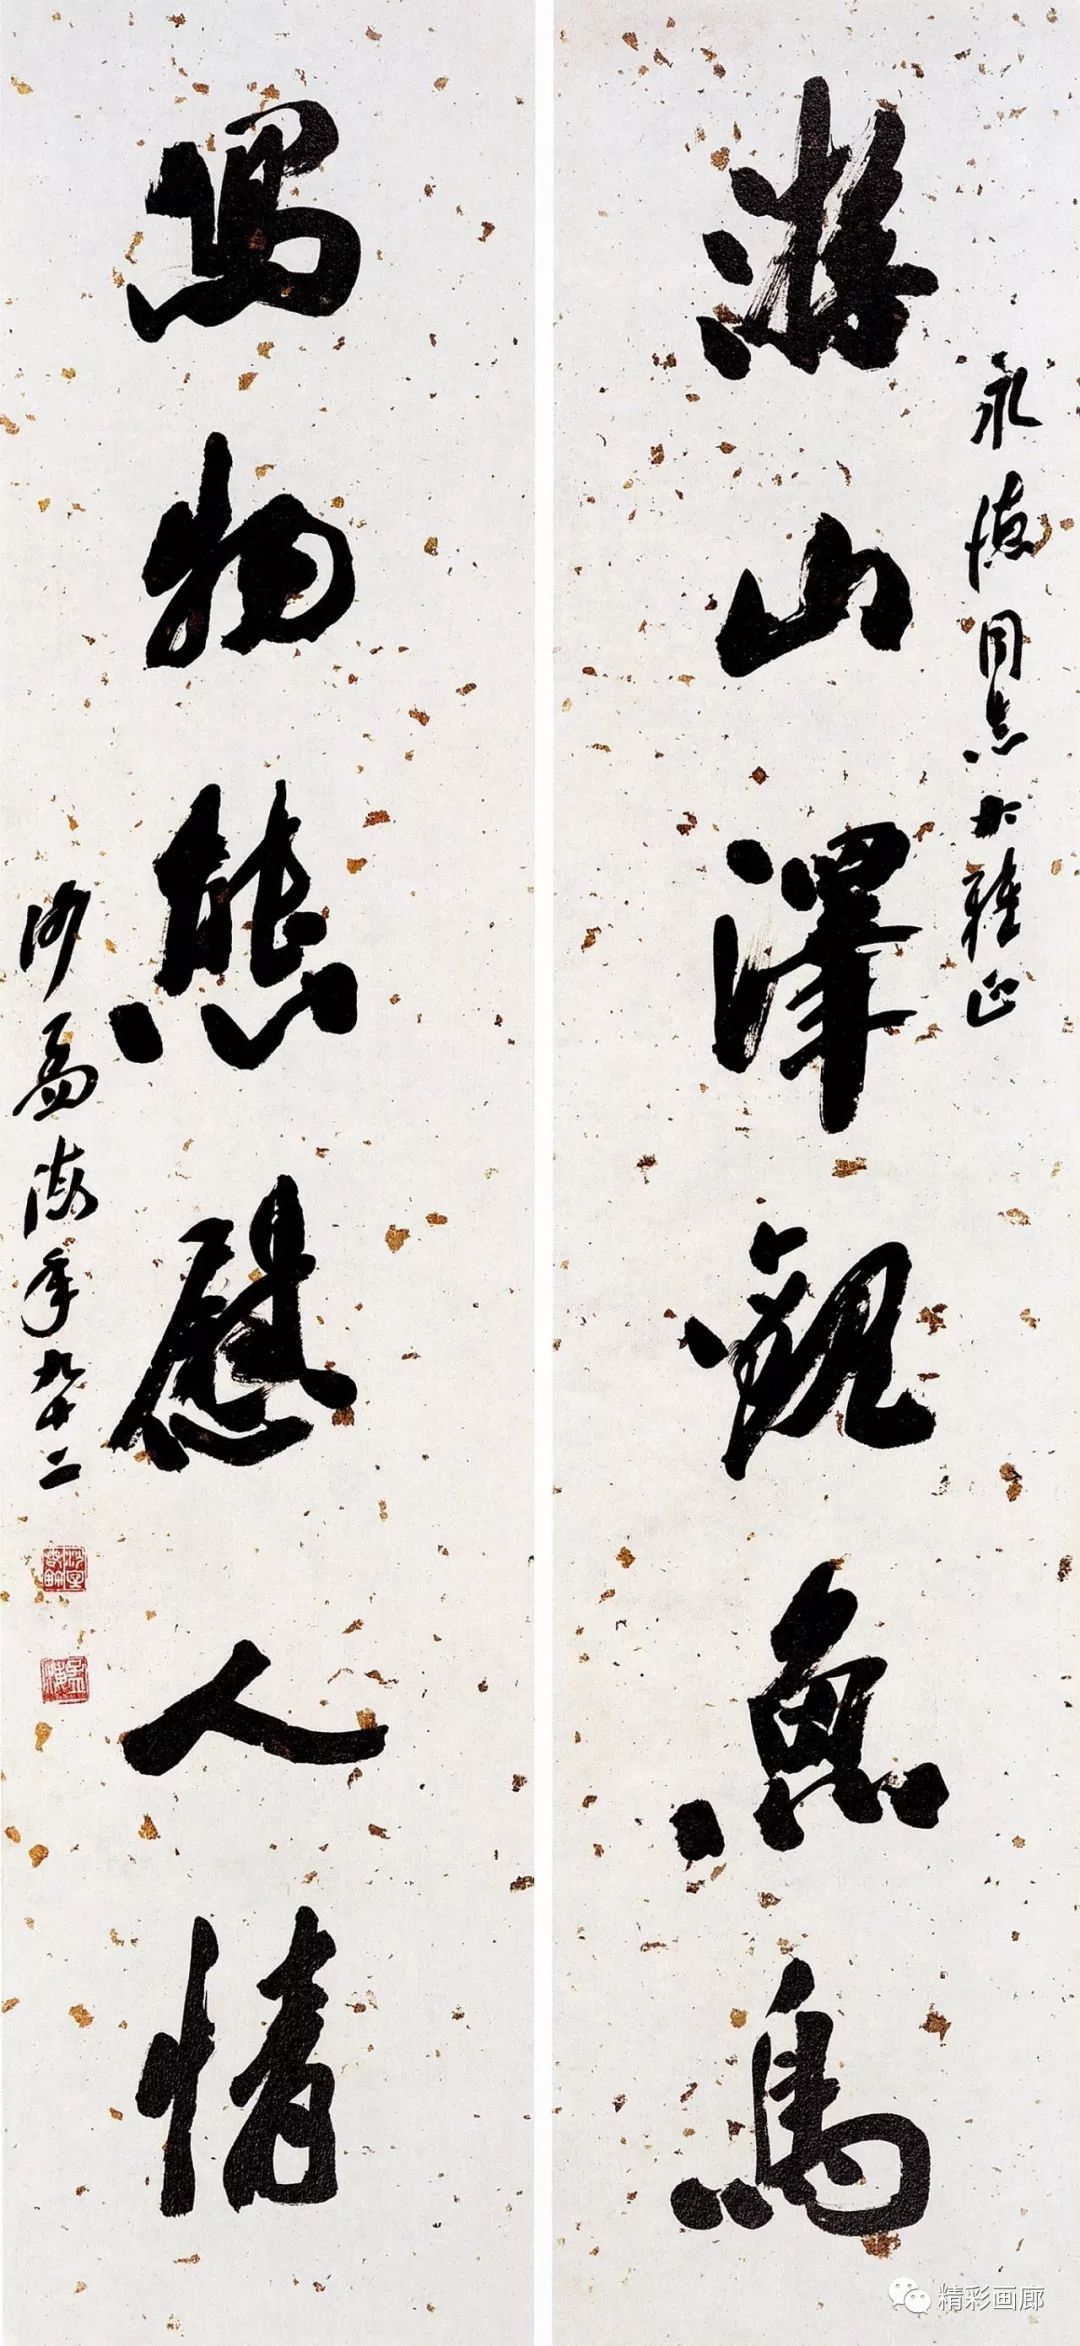 永德同志大雅正
游山澤觀魚鳥
寫物態慰人情
沙孟海年九十二
精彩画廊